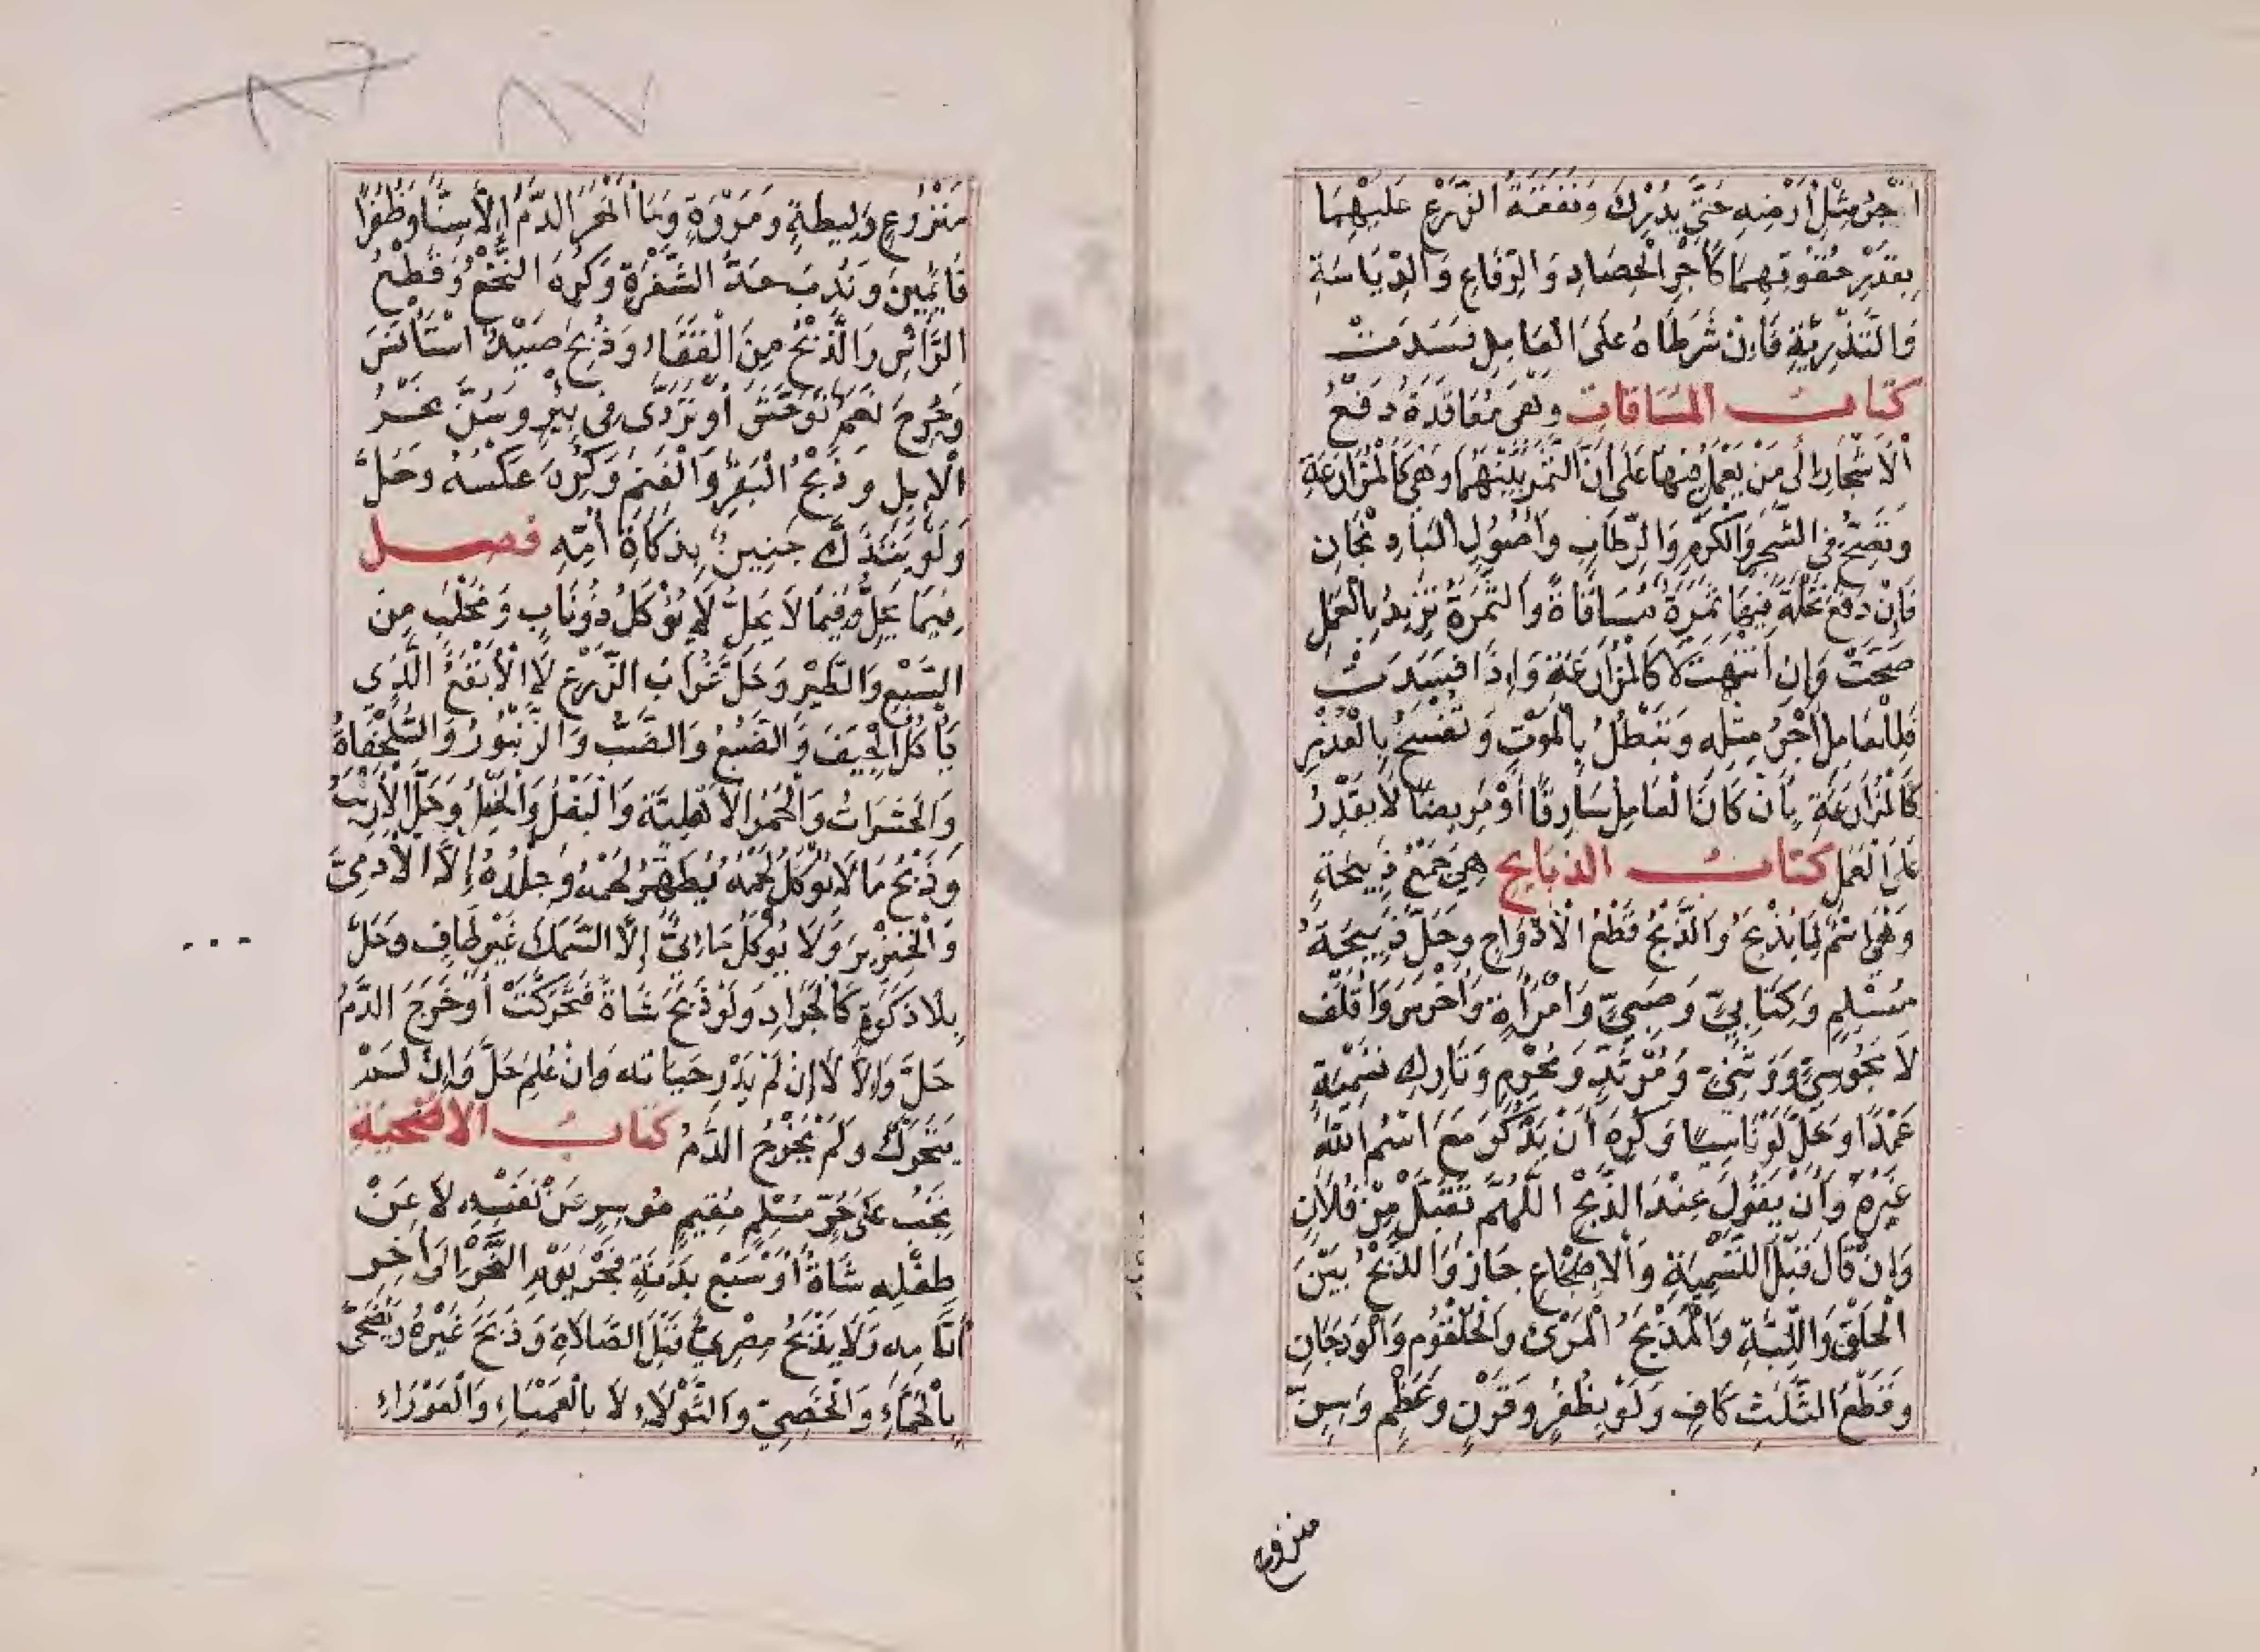 اَجْرُ مِثْلِ اَرْضِهِ حَتَّى يُدْرِكَ وَنَفَقَةُ الزَّرْعِ عَلَيْهِمَا
بِقَدْرِ حُقُوقِهِمَا كَأَجْرِ الْحِصَادِ وَالرِّفَاعِ وَالدِّيَاسَةِ
وَالتَّذْرِيَّةِ فَاِنْ شَرَطَاهُ عَلَى الْعَامِلِ فَسَدَتْ
كتاب المساقات وَهِىَ مُعَاقَدَةُ دَفْعُ
الْاَشْجَارِ اِلَى مَنْ يَعْمَلُ فِيهَا عَلَى اَنَّ التَّمْرَ بَيْنَهُمَا وَهِيَ كَالْمُزَارَعَةِ
وَتَصِحُّ فِي الشَّجَرِ وَالْكَرْمِ وَالرِّطَابِ وَاُصُولِ الْبَادِنْجَانِ
فَاِنْ دَفَعَ نَخْلَةً فِيهَا ثَمَرَةٌ مُسَاقَاةً وَالثَّمَرَةُ تَزِيدُ بِالْعَمَلِ
صَحَّتْ وَاِنِ انْتَهَتْ لَا كَالْمُزَارَعَةِ وَاِذَا فَسَدَتْ
فَلِلْعَامِلِ اَجْرُ مِثْلِهِ وَتَبْطُلُ بِالْمَوْتِ وَتُفْسَخُ بِالْعُذْرِ
كَالْمُزَارَعَةِ بِأَنْ كَانَ الْعَامِلُ سَارِقًا اَوْ مَرِيضًا لَا يَقْدِرُ
عَلَى الْعَمَلِ كتاب الذبايح هِيَ جَمْعُ ذَبِيحَةٍ
وَهْوَ اسْمٌ لِمَا يُذْبَحُ وَالذَّبْحُ قَطْعُ الْاَدْوَاجِ وَحَلَّ ذَبِيحَةُ
مُسْلِمٍ وَكِتَابِيٍّ وَصَبِيٍّ وَامْرَاَةٍ وَاَخْرَسَ وَاَقْلَفَ
لَا مَجُوسِيٍّ وَوَثَنِيٍّ وَمُرْتَدٍّ وَمُحْرِمٍ وَتَارِكِ تَسْمِيَةٍ
عَمْدًا وَحَلَّ لَوْ نَاسِيًا وَكُرِهَ اَنْ يَذْكُرَ مَعَ اسْمِ اللّٰهِ
غَيْرَهُ وَاَنْ يَقُولَ عِنْدَ الذَّبْحِ اَللّٰهُمَّ تَقَبَّلْ مِنْ فُلَانٍ
وَاِنْ قَالَ قَبْلَ التَّسْمِيَةِ وَالْاِضْجَاعِ جَازَ وَالذَّبْحُ بَيْنَ
الْحَلْقِ وَاللَّبَّةِ وَالْمَذْبَحُ الْمَرِىُّ وَالْحُلْقُومُ وَالْوَدَجَانِ
وَقَطْعُ الثَّلَثِ كَافٍ وَلَوْ بِظُفُرٍ وَقَرْنٍ وَعَظْمٍ وَسِنٍّ
منزوع
٨٦ ٨٧
مَنْزُوعٍ وَلِيطَةٍ وَمَرْوَةٍ وَمَا اَنْهَرَ الدَّمَ اِلَّا سِنًّا وَظُفُرًا
قَائِمَيْنِ وَنُدِبَ حَدُّ الشَّفْرَةِ وَكُرِهَ النَّخْعُ وَقَطْعُ
الرَّاْسِ وَالذَّبْحُ مِنَ الْقَفَاءِ وَذُبِحَ صَيْدٌ اسْتَأْنَسَ
وَجُرِحَ نَعَمٌ تَوَحَّشَ اَوْ تَرَدَّى فِى بِئْرٍ وَسُنَّ نَحْرُ
الْاِبِلِ وَذَبْحُ الْبَقَرِ وَالْغَنَمِ وَكُرِهَ عَكْسُهُ وَحَلَّ
وَلَوْ يَتَذَكَّ جَنِينٌ بِذَكَاةِ اُمِّهِ فصل
فِيمَا يَحِلُّ وَفِيمَا لَا يَحِلُّ لَا يُؤْكَلُ ذُو نَابٍ وَمَخْلَبٍ مِنَ
السَّبُعِ وَالطَّيْرِ وَحَلَّ غُرَابُ الزَّرْعِ لَا الْاَبْقَعُ الَّذِي
يَأْكُلُ الْجِيَفَ وَالضَّبُعُ وَالضَّبُّ وَالزَّنْبُورُ وَالسُّلَحْفَاةُ
وَالْحَشَرَاتُ وَالْحُمُرُ الْاَهْلِيَّةُ وَالْبَغْلُ وَالْخَيْلُ وَحَلَّ الْاَرْنَبُ
وَذَبْحُ مَا لَا يُؤْكَلُ لَحْمُهُ يُطَهِّرُ لَحْمَهُ وَجِلْدَهُ اِلَّا الْاَدَمِىَّ
وَالْخِنْزِيرَ وَلَا يُؤْكَلُ مَائِىٌّ اِلَّا السَّمَكَ غَيْرَ طَافٍ وَحَلَّ
بِلَا ذَكَوةٍ كَالْجَرَادِ وَلَوْ ذَبَحَ شَاةً فَتَحَرَّكَتْ اَوْ خَرَجَ الدَّمُ
حَلَّ وَاِلَّا لَا اِنْ لَمْ يَدْرِ حَيَاتَه وَاِنْ عُلِمَ حَلَّ وَاِنْ لَمْ
يَتَحَرَّكْ وَلَمْ يَخْرُجِ الدَّمُ كتاب الاضحية
يَجِبُ عَلَى حُرٍّ مُسْلِمٍ مُقِيمٍ مُوسِرٍ عَنْ نَفْسِهِ لَا عَنْ
طِفْلِهِ شَاةٌ اَوْ سَبْعُ بَدَنَةٍ فَجْرَ يَوْمِ النَّحْرِ اِلَى اٰخِرِ
اَيَّامِهِ وَلَا يَذْبَحُ مِصْرِيٌّ قَبْلَ الصَّلَاةِ وَذَبَحَ غَيْرُهُ وَيُضَحَّى
بِالْجَمَّاءِ وَالْخَصِيِّ وَالثَّوْلَاءِ لَا بِالْعَمْيَاءِ وَالْعَوْرَاءِ